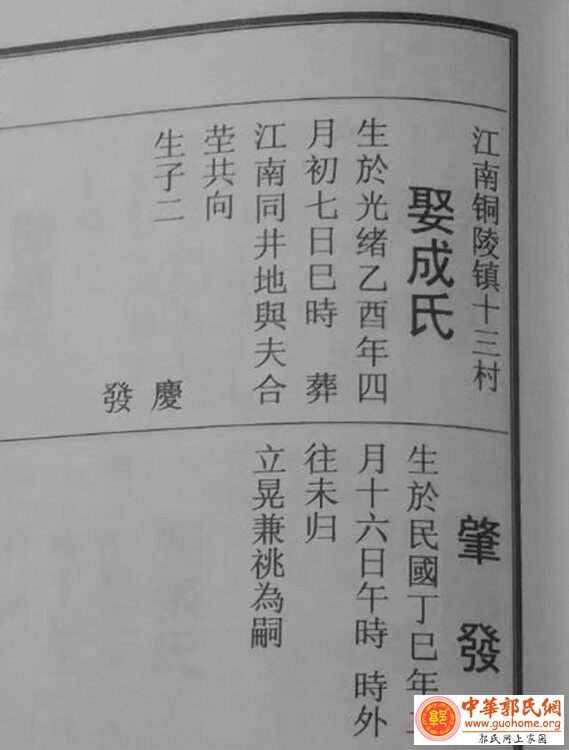 江南铜陵镇十三村
娶成氏
生於光绪乙酉年四
月初七日巳時 葬
江南同井地與夫合
茔共向
生子二
慶
發
肇發
生於民國丁巳年
月十六日午時 時外
往未归
立晃兼祧為嗣
中華郭氏網
www.guohome.org
郭氏网上家園